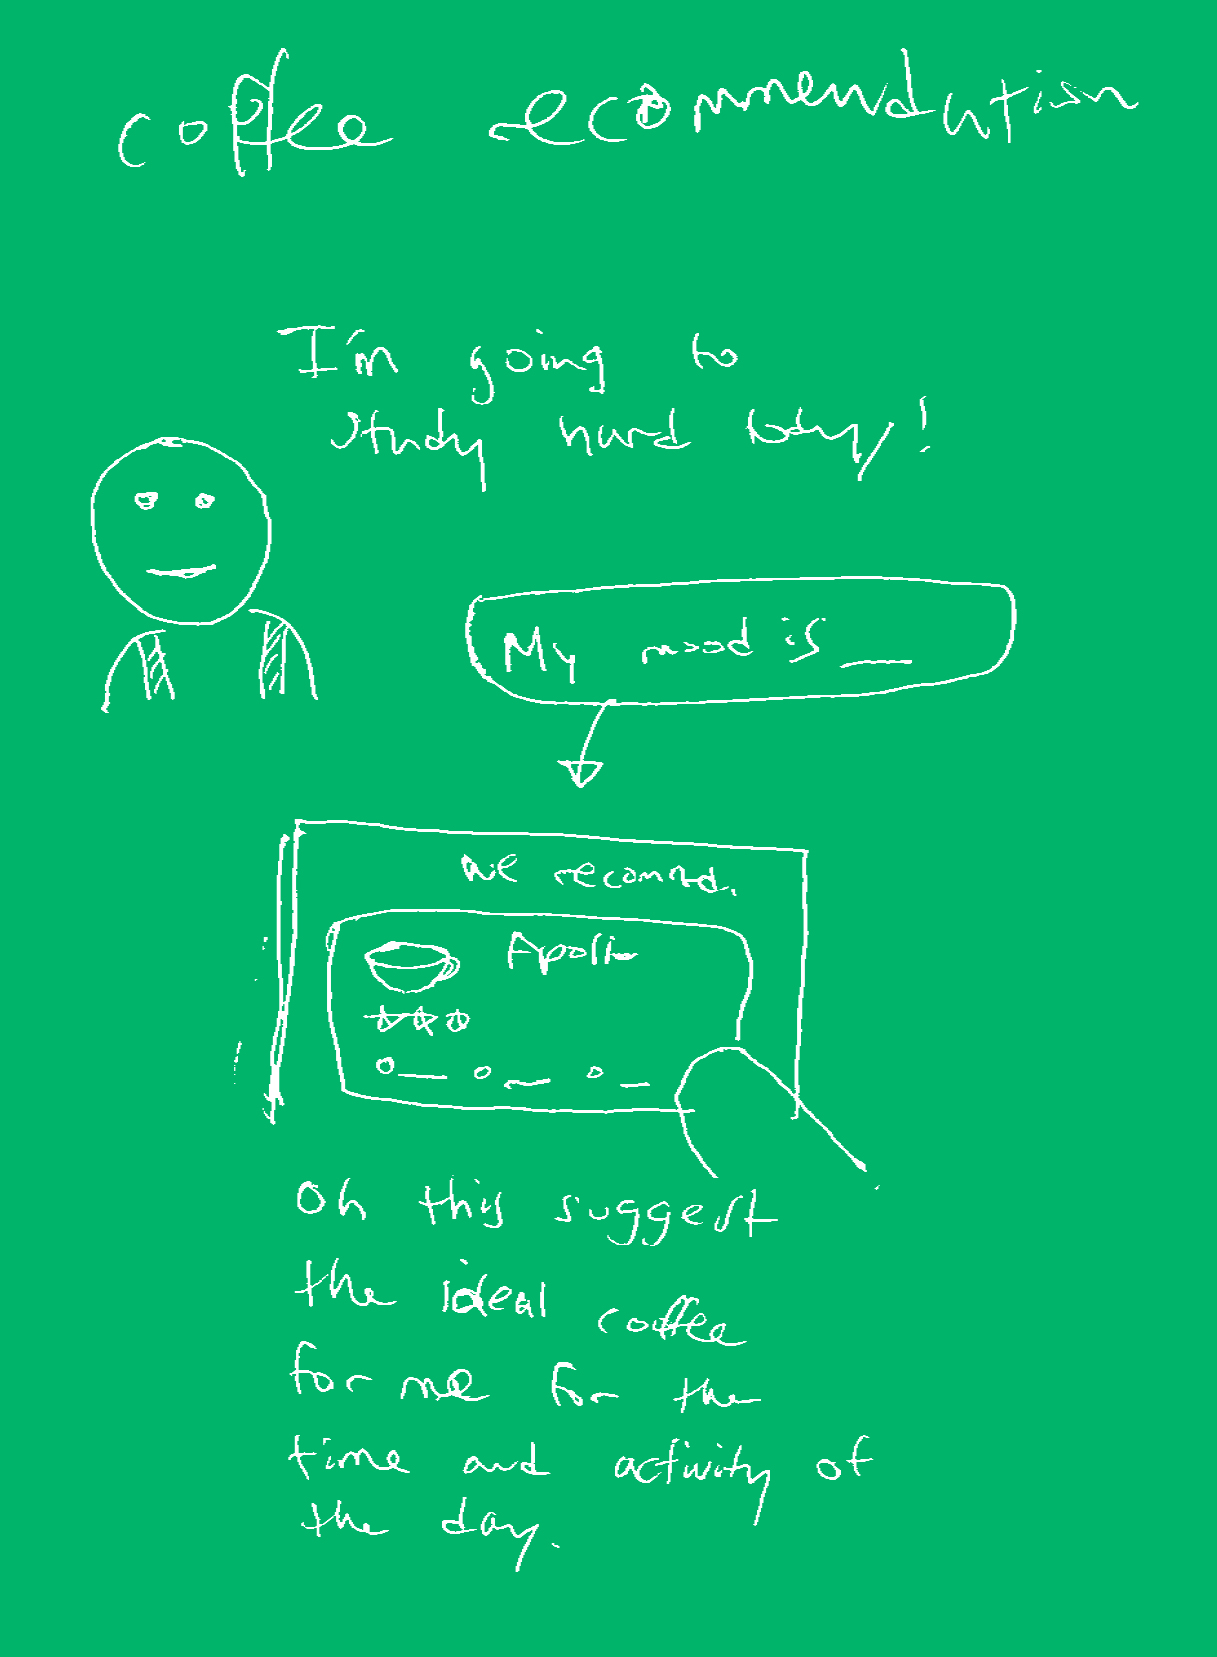 coffee recommendation
I'm going to
study hard today!
My mood is __
we recomnd.
Apollo
oh this suggest
the ideal coffee
for me for the
time and activity of
the day.